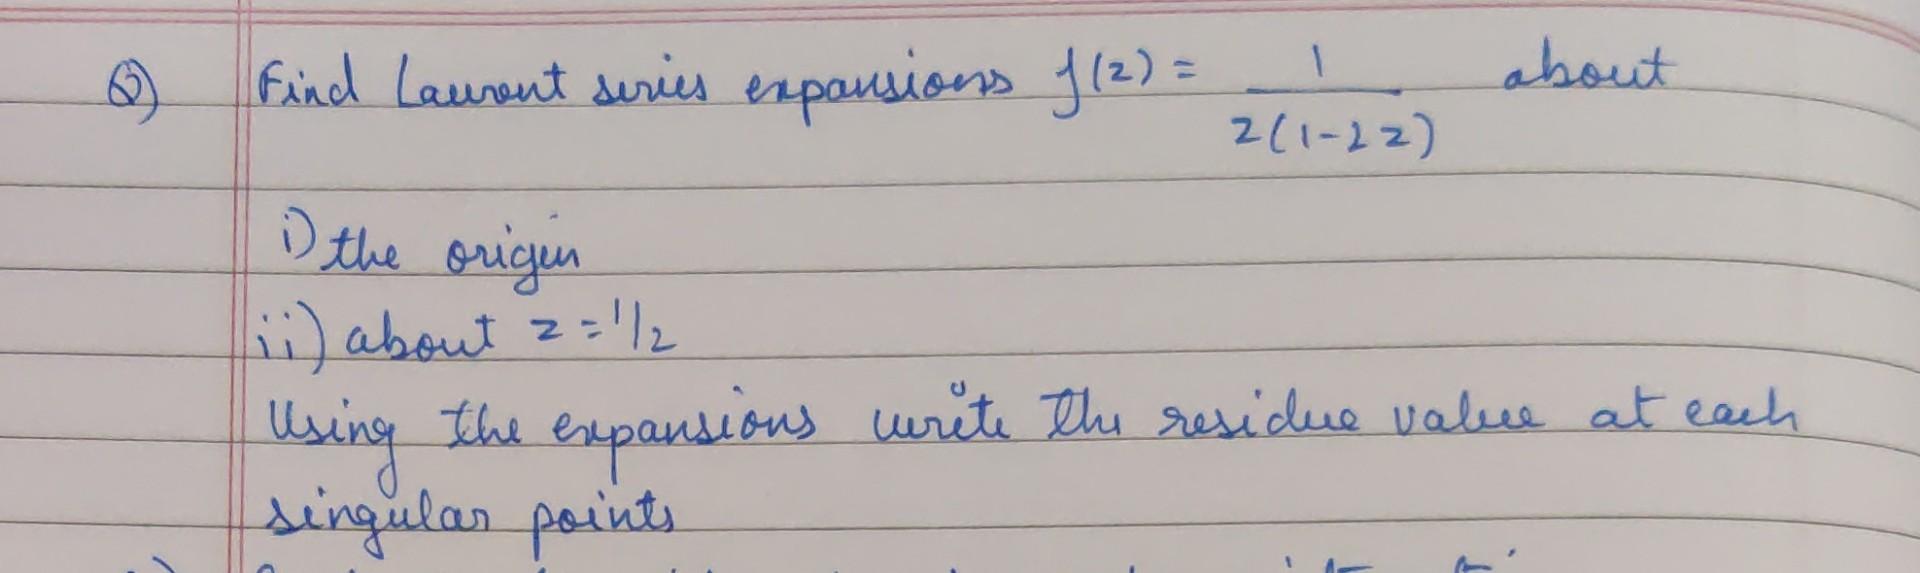 Q) Find Laurent series expansions f(z) = 1 / z(1-2z) about
i) the origin
ii) about z = 1/2
Using the expansions write the residue value at each
singular points